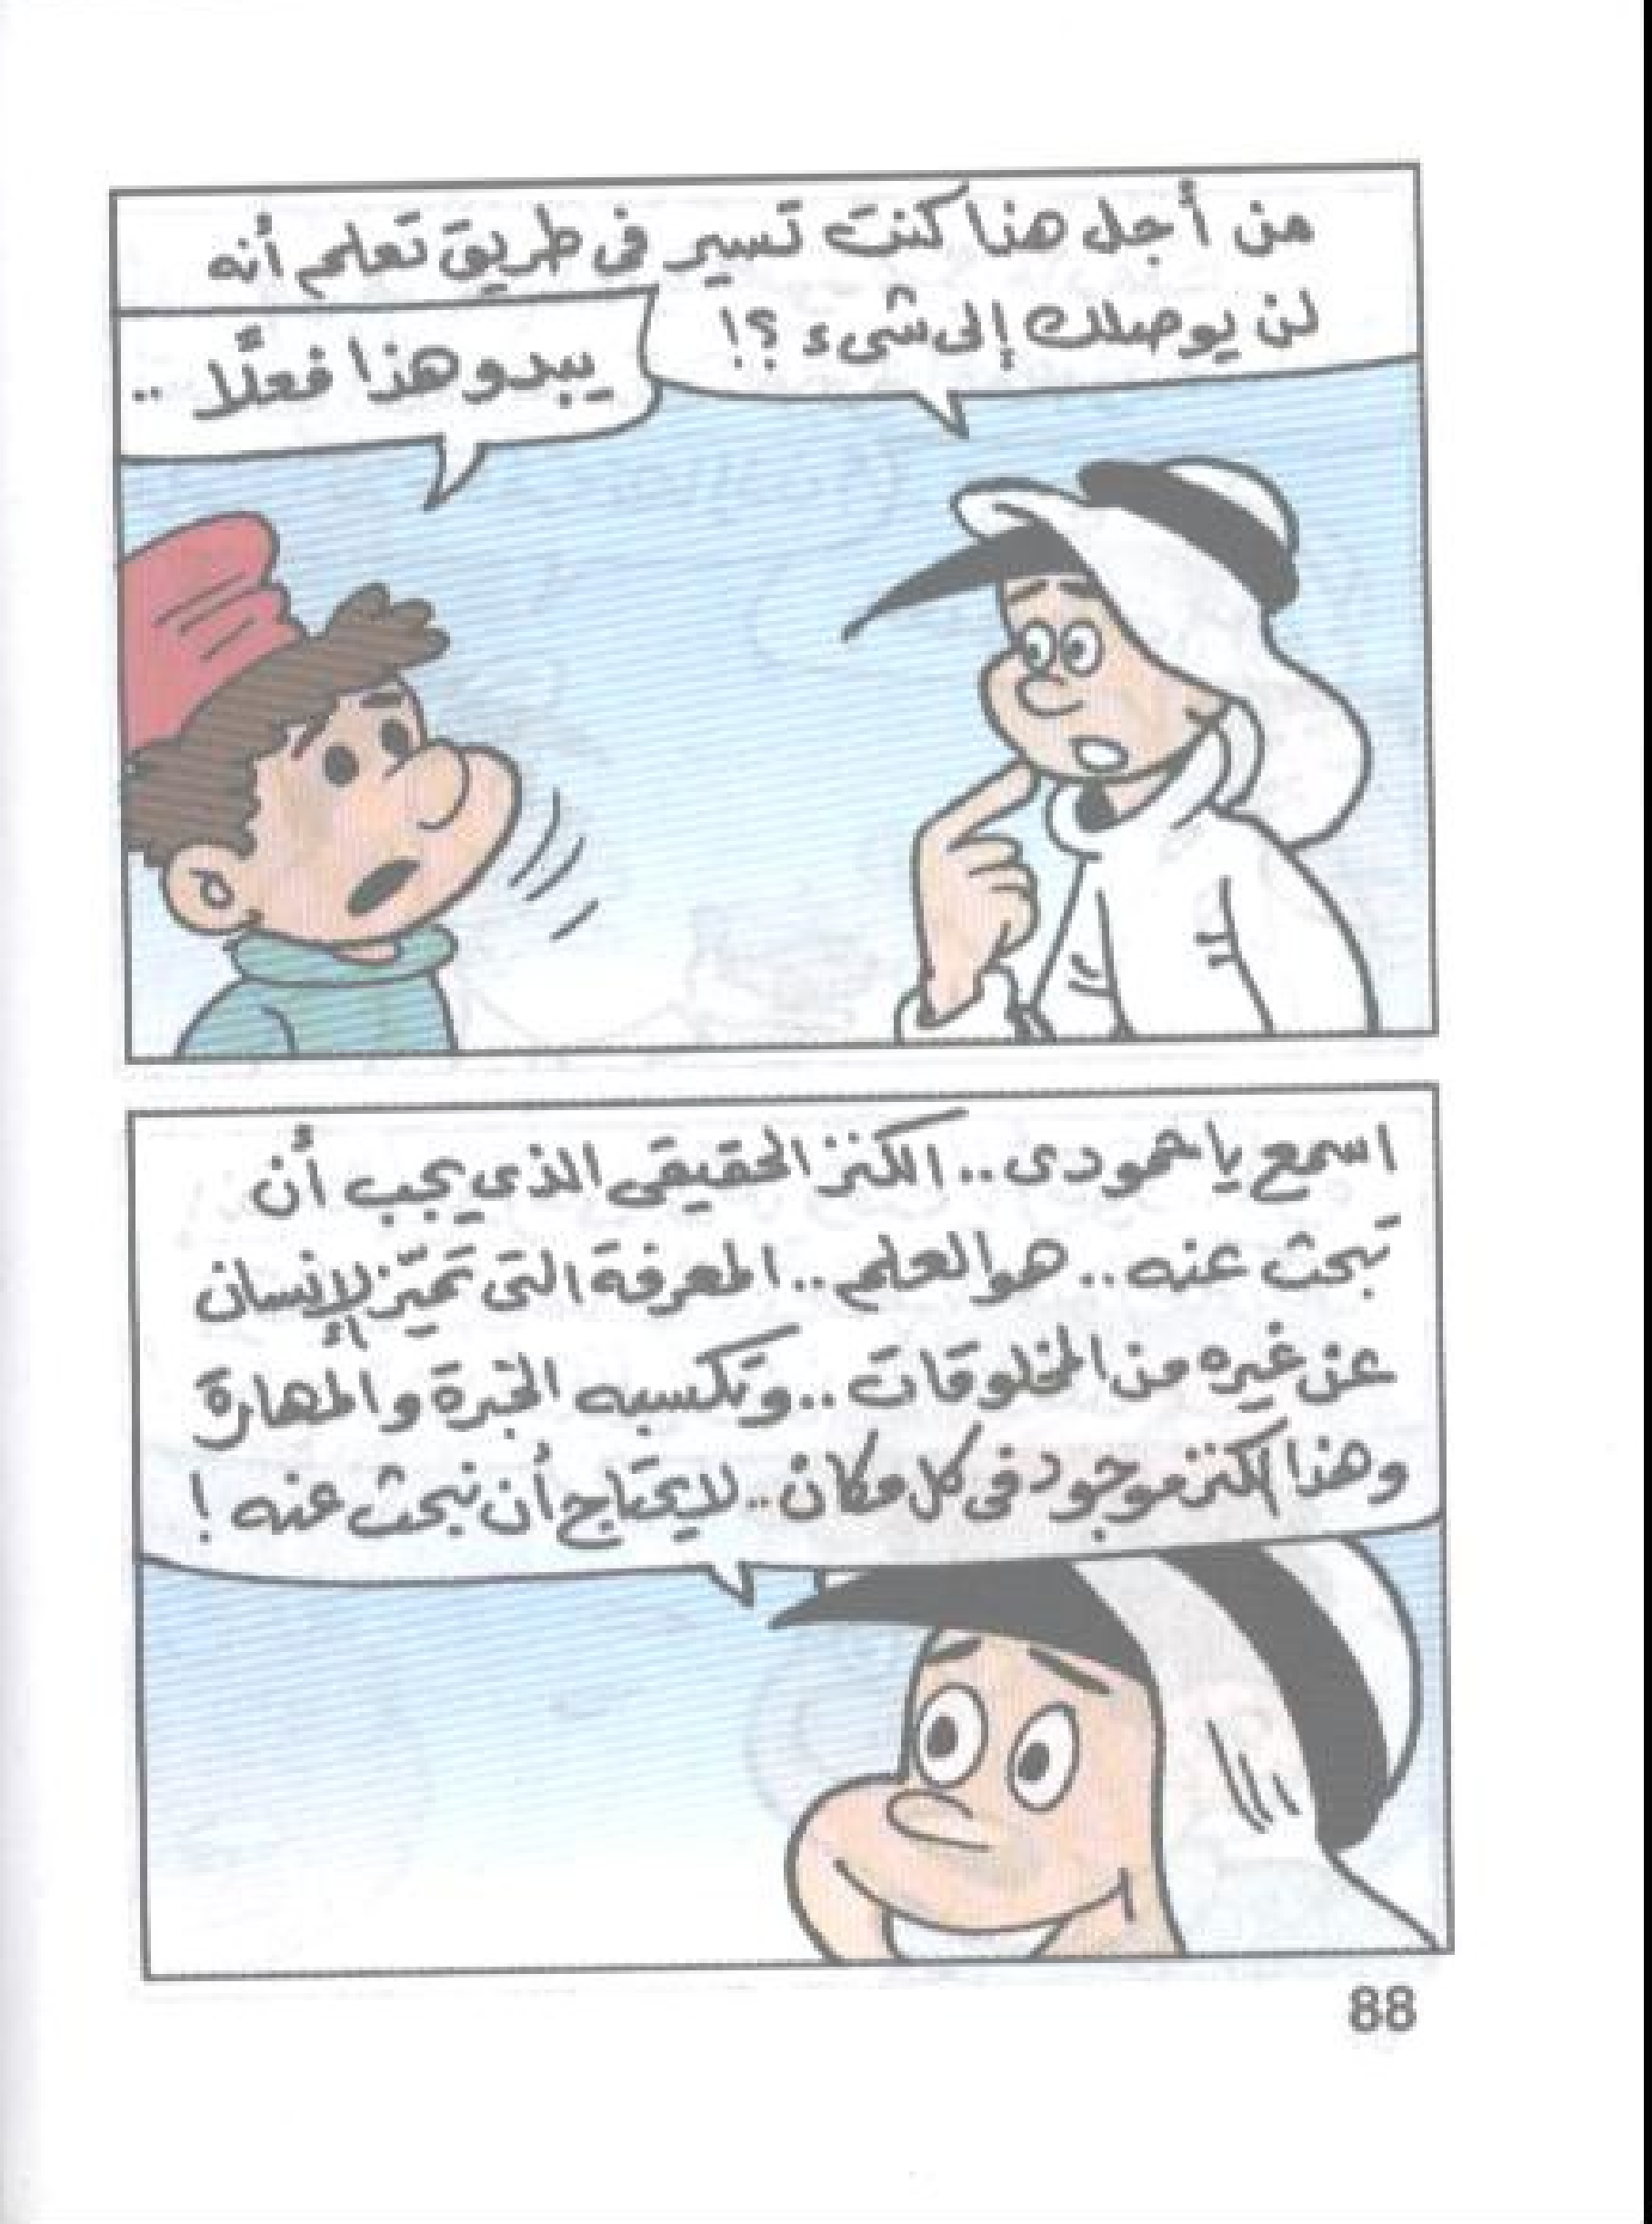 من أجل هذا كنت تسير فى طريق تعلم أنه
لن يوصلك إلى شىء ؟!
يبدو هذا فعلًا ..
اسمع يا حمودى .. الكنز الحقيقى الذى يجب أن
تبحث عنه .. هو العلم .. المعرفة التى تميّز الإنسان
عن غيره من المخلوقات .. وتكسبه الخبرة والمهارة
وهذا الكنز موجود فى كل مكان .. لا يحتاج أن نبحث عنه !
88